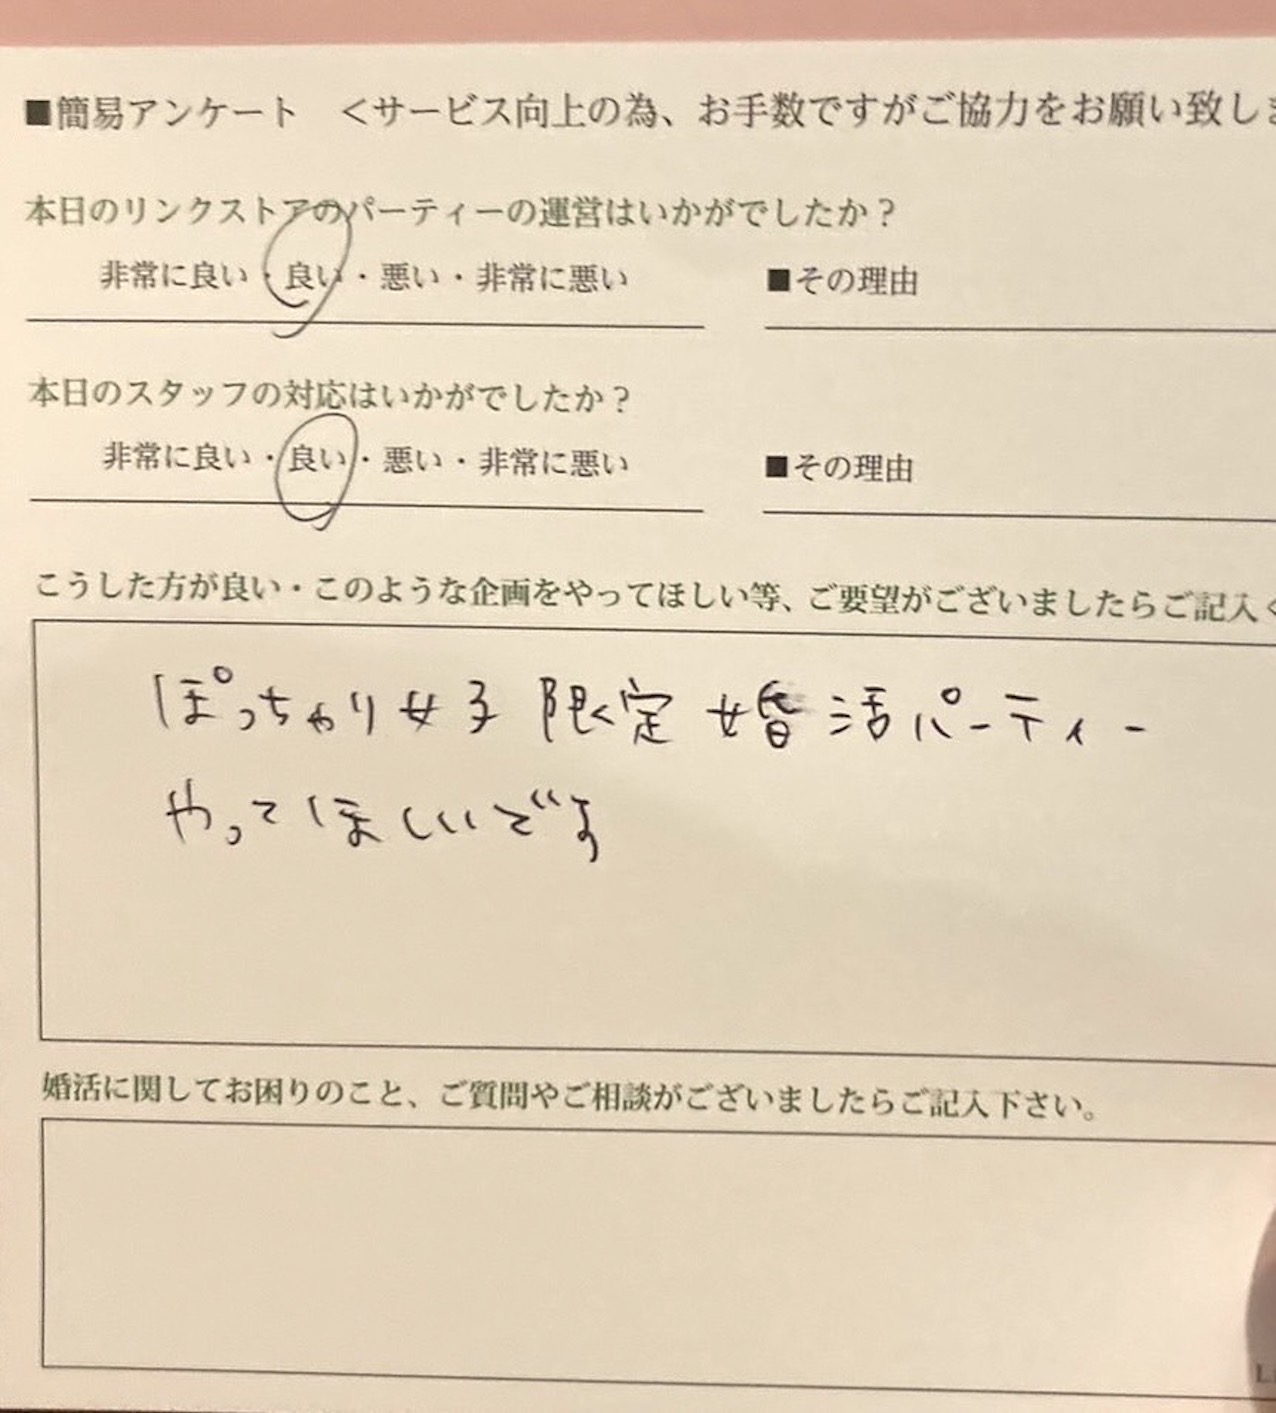 ■簡易アンケート ＜サービス向上の為、お手数ですがご協力をお願い致しま
本日のリンクストアのパーティーの運営はいかがでしたか？
非常に良い・良い・悪い・非常に悪い ■その理由
本日のスタッフの対応はいかがでしたか？
非常に良い・良い・悪い・非常に悪い ■その理由
こうした方が良い・このような企画をやってほしい等、ご要望がございましたらご記入く
ぽっちゃり女子 限定 婚活パーティー
やってほしいです
婚活に関してお困りのこと、ご質問やご相談がございましたらご記入下さい。